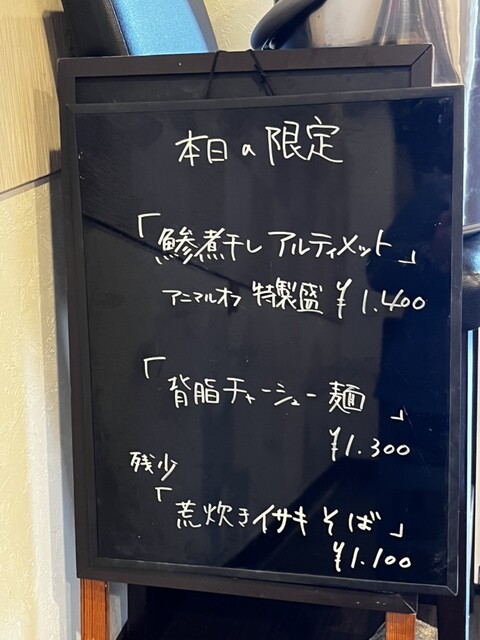 本日の限定
「鯵煮干しアルティメット」
アニマルオフ 特製盛 ¥1.400
「背脂チャーシュー麺」
¥1.300
残少
「荒炊きイサキそば」
¥1.100